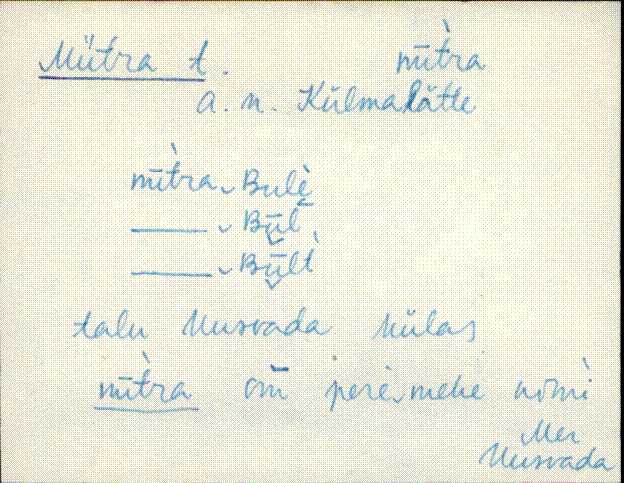 Mütra t. mītra
a. n. Külmalätte
mītra Bulè
____ Būl,
____ Būlt
talu Uusvada külas
mītra om̄ perè mehe nimi
Mer
Uusvada